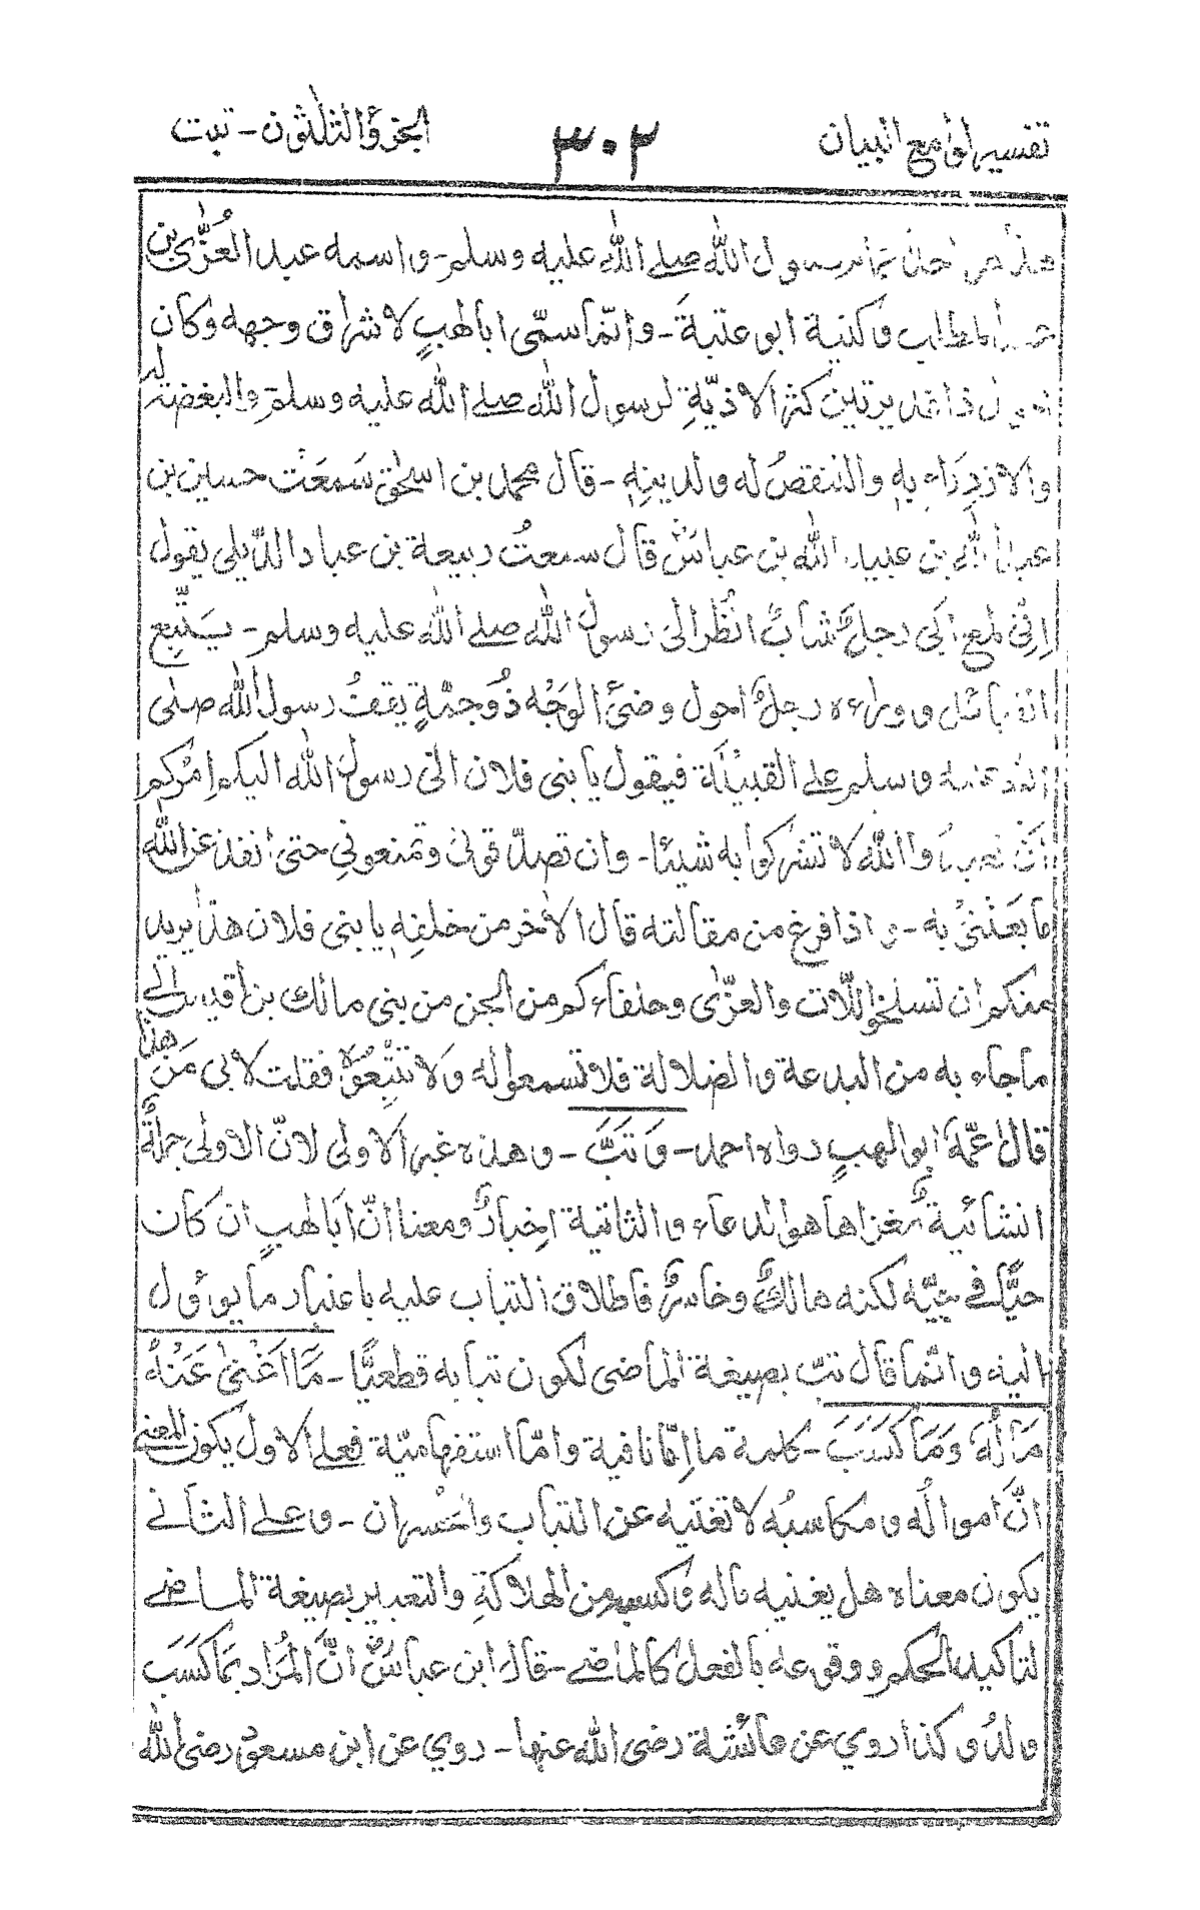 تفسير لوامع البيان ٣٠٢ الجزؤ الثلثون - تبت
رسول الله صلى الله عليه وسلم - واسمه عبد العُزّٰى بن
المطلب وكنية ابو عتبة - وانّما سمّى ابا لهبٍ لاشراق وجهه وكان
كثير الاذيّةِ لرسول الله صلى الله عليه وسلم والبغضة له
والازدِرَاءِ بِهٖ والتنقصُ له ولدينِهٖ - قال محمد بن اسحٰق سَمعَت حسين بن
عبد الله بن عبيد الله بن عباسؓ قال سمعتُ ربيعة بن عباد الدّيلى يقول
اِنِّى لمع اَبى رجلٌ شابٌ انظُرُ الىٰ رسول الله صلى الله عليه وسلم - يَتَّبِع
القبائل و وراءه رجلٌ احول وضئُ الوَجْه ذُو جمّةٍ يقفُ رسول الله صلى
الله عليه وسلم على القبيْلَة فيقول يا بنى فلان انّى رسول الله اليكم اٰمُركم
اَنْ تعبدوا الله لا تشركوا به شيئا - وان تصدّ قونى وتمنعونِى حتى انفذ عن الله
ما بعَثَنىْ به - و اذا فرغ من مقالته قال الاٰخر من خلفهٖ يا بنى فلان هذا يريد
منكم ان تسلخوا اللّات والعزّٰى وحلفاءكم من الجن من بنى مالك بن اقيش الى
ما جاء به من البدعة والضلالة فلا تسمعوا له وَلا تَتَّبِعُوْهُ فقلت لابى مَن هذا
قال عمّهٗ ابو لهبٍ رواه احمد - وَتَبَّ - وهذه غير الاولى لانّ الاولى جملةٌ
انشائيةٌ مغزاها هو الدعاء والثانية اِخبارٌ ومعنا انّ اَبا لهبٍ ان كان
حيًّا فى حيّه لكنه هالكٌ وخاسرٌ فاطلاق التباب عليه باعتبار ما يوؤل
اليه وانّما قال تبّ بصيغة الماضى لكون تبابه قطعيًّا - مَا اَغْنٰى عَنْهُ
مَالُهٗ وَمَا كَسَبَ - كلمة ما اِمّا نافية وامّا استفهاميّة فعلى الاول يكون المعنى
انَّ اموالُه ومكاسبُه لا تغنيه عن التباب والخسران - وعلى الثانى
يكون معناه هل يغنيه ماله وكسبه من الهلاكةِ والتعبير بصيغة الماضى
لتاكيد الحكم ووقوعه بالفعل كالماضى - قال ابن عباسؓ انَّ المُرَاد بمَا كَسَبَ
ولدُه وكذا روي عن عائشة رضى الله عنها - روي عن ابن مسعودؓ رضى الله